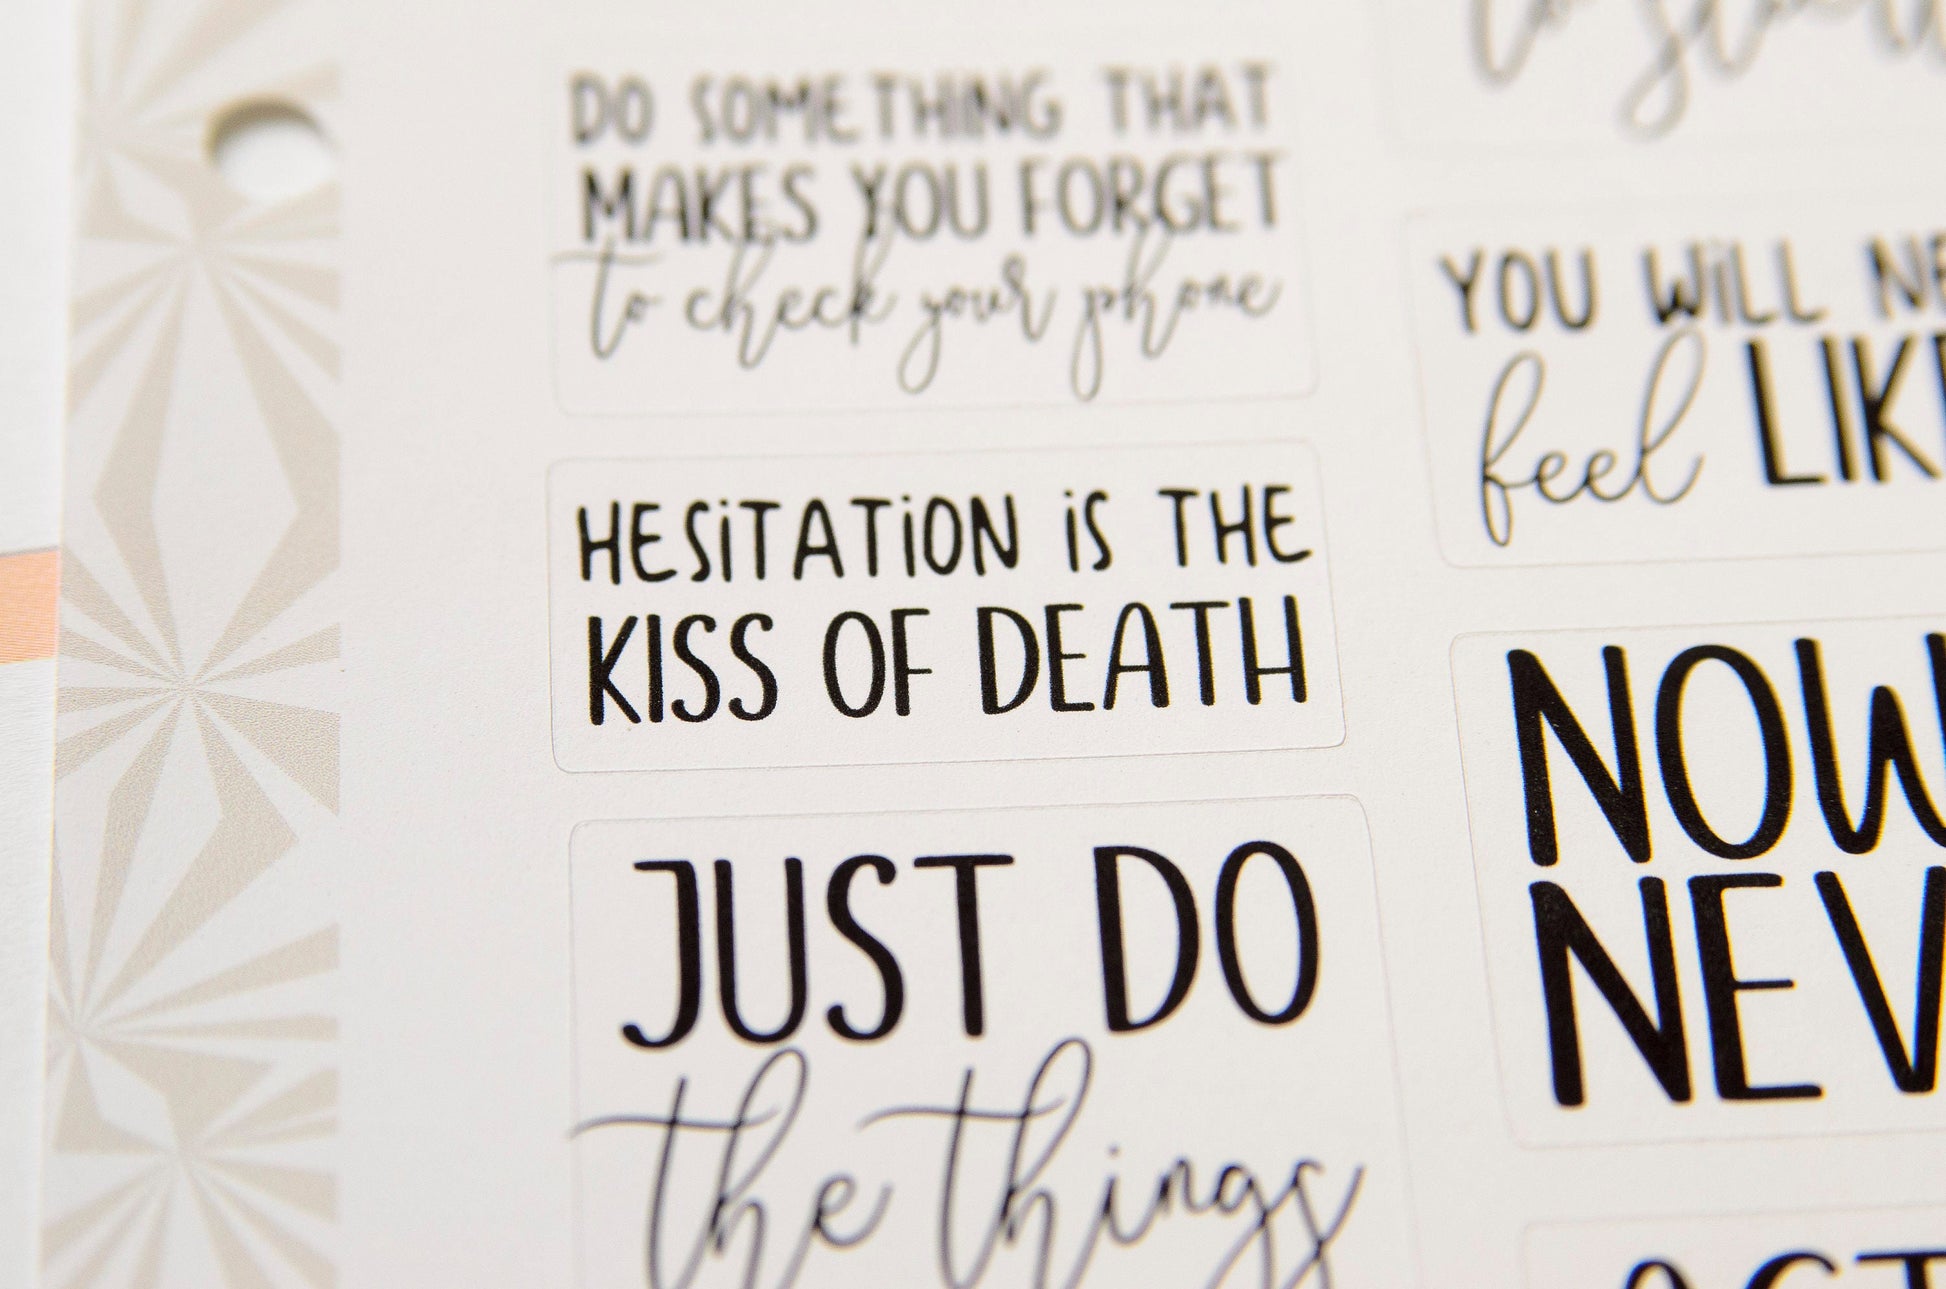 DO SOMETHING THAT
MAKES YOU FORGET
to check your phone
HESiTATiON iS THE
KISS OF DEATH
JUST DO
the things
YOU WiLL
feel